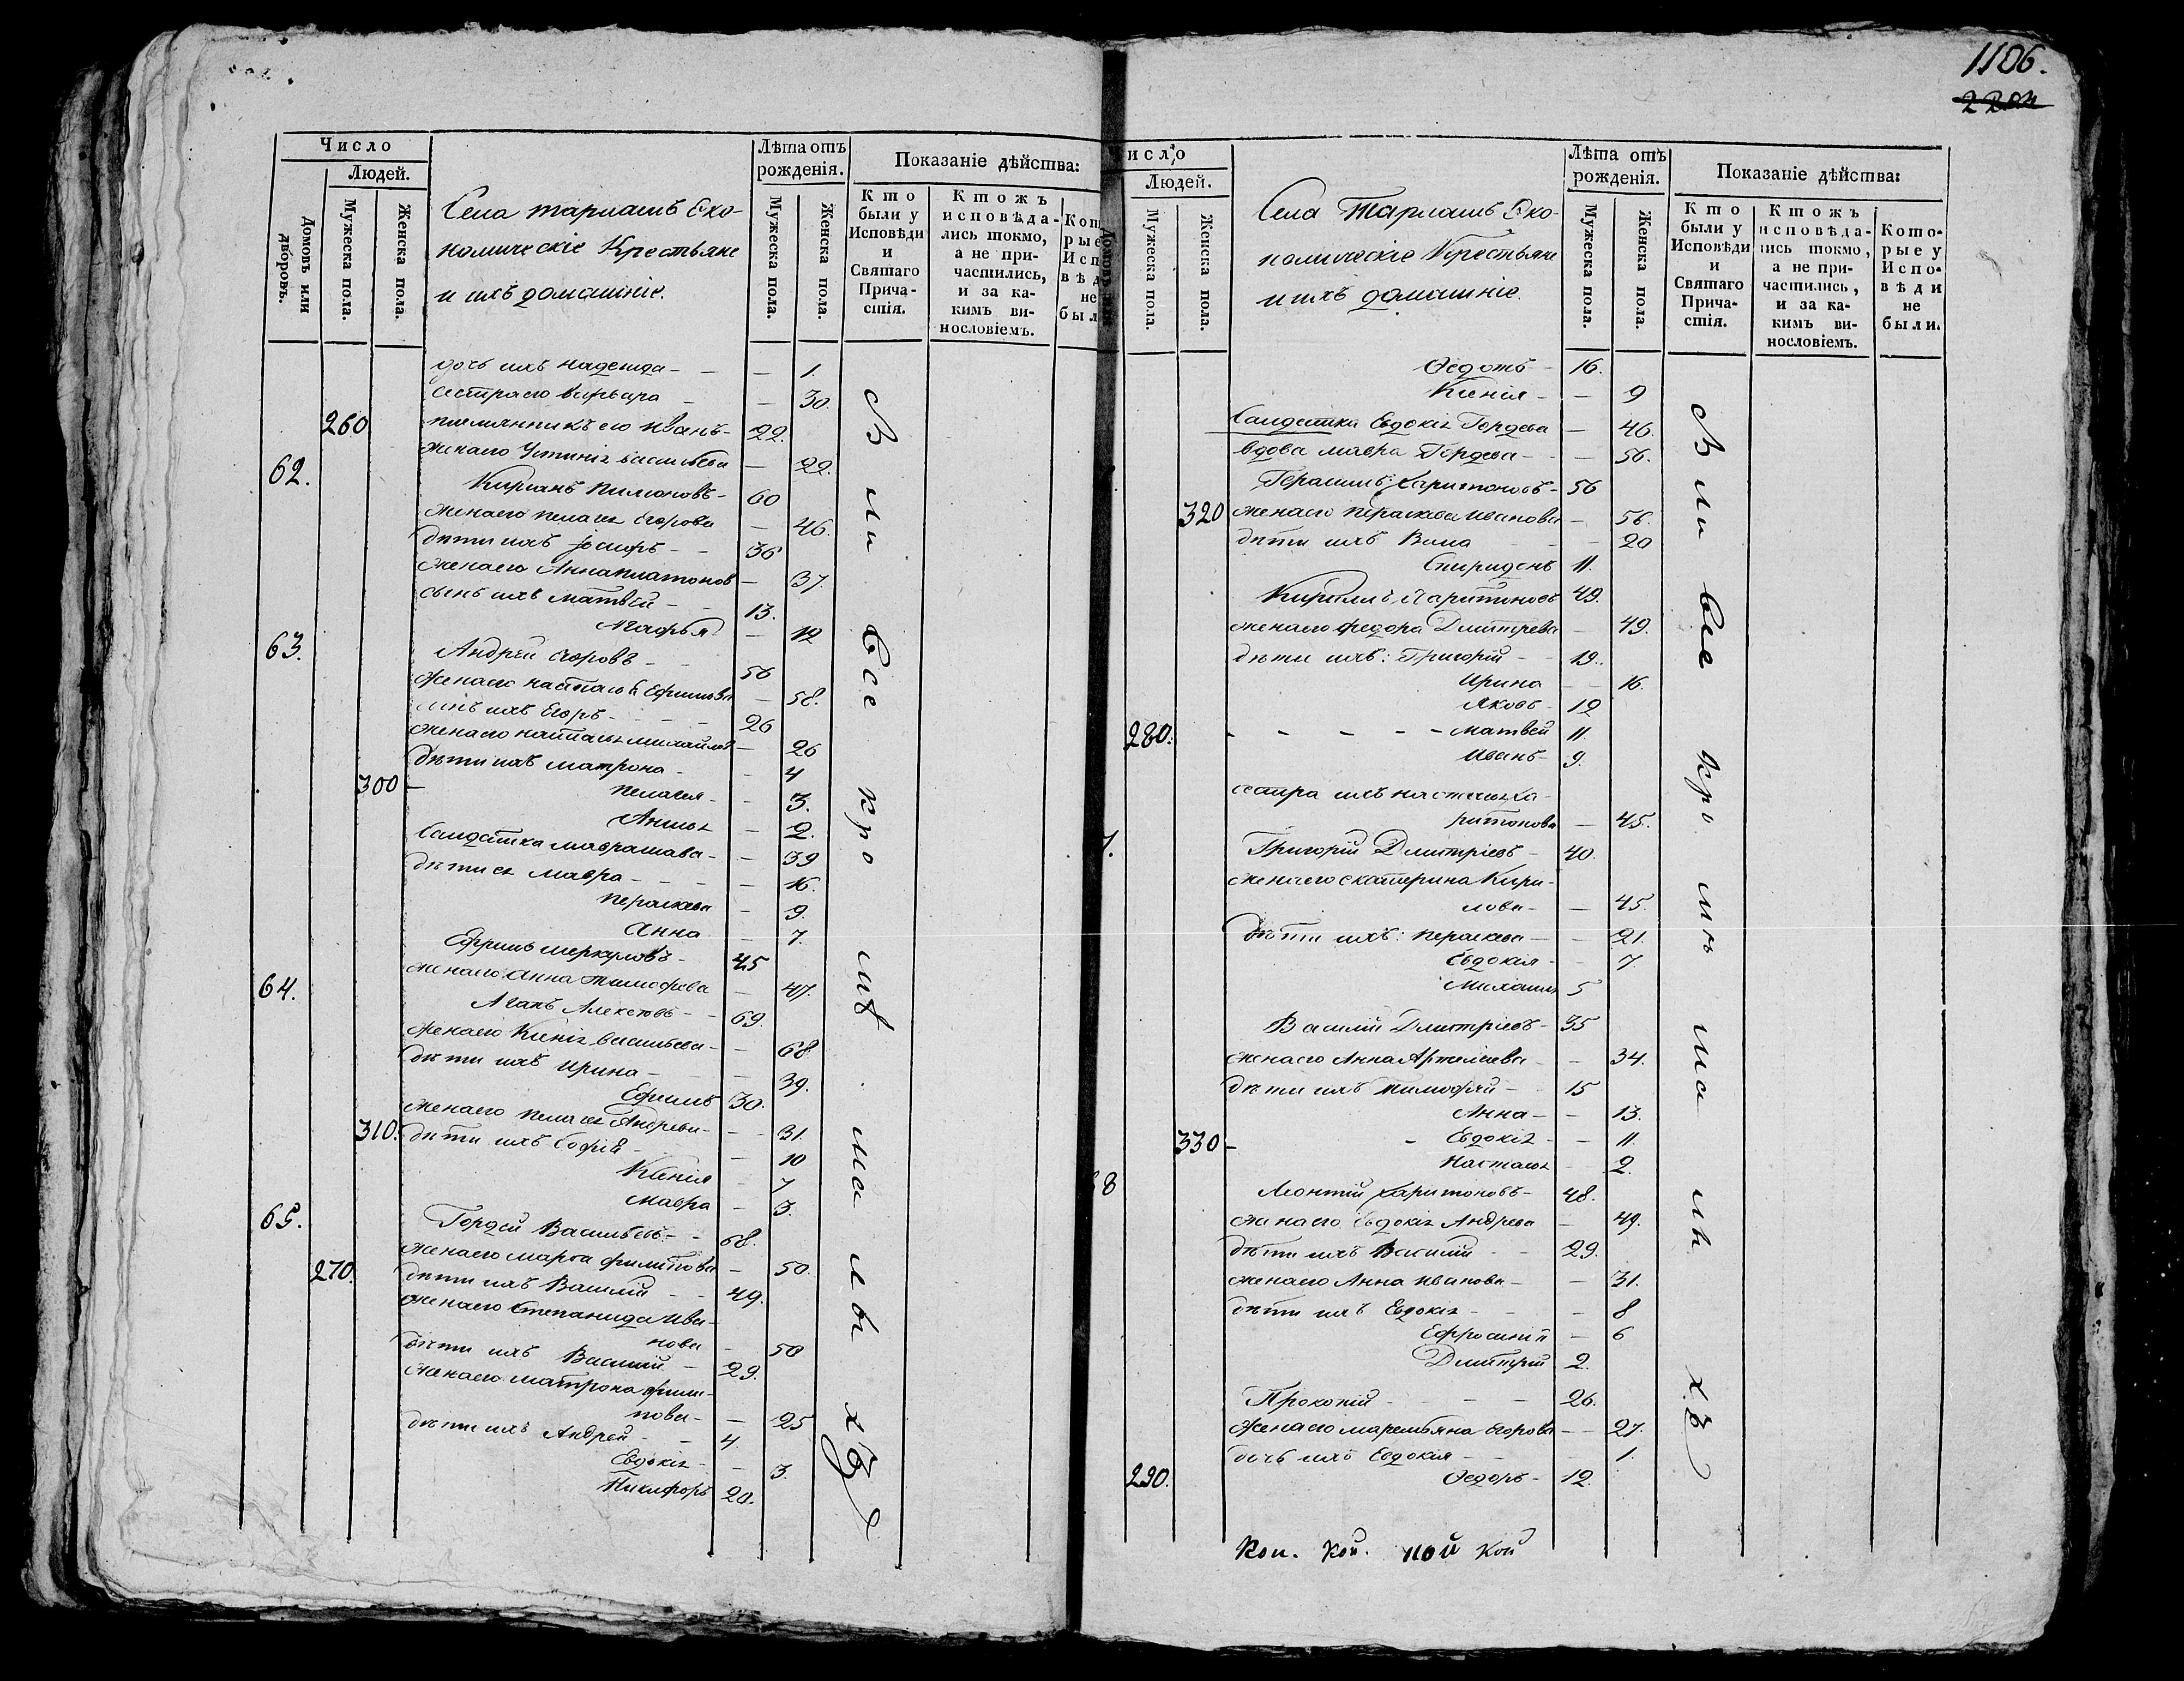 1106.
Число
Людей.
Домовъ или дворовъ.
Мужеска пола.
Женска пола.
Села Тарлашъ Эко-
номическіе Крестьяне
и ихъ домашніе.
Лѣта отъ рожденія.
Мужеска пола.
Женска пола.
Показаніе дѣйства:
Кто были у Исповѣди и Святаго Прича-стія.
Ктожъ исповѣда-лись токмо, а не при-частились, и за ка-кимъ ви-нословіемъ.
дочь ихъ Надежда - - - 1.
сестра его Варвара - - 30.
260 племянникъ его Иванъ - 22.
жена его Устинія Васильева - 22.
62. Кирианъ Пимоновъ - 60
жена его Пелагея Егорова - 46.
дѣти ихъ Іосифъ - - 36
жена его Анна Платонов - 37.
сынъ ихъ Матвей - - 13.
Агафья - 12
63. Андрей Егоровъ - - 56
жена его Настасья Ефимова - 58.
сынъ ихъ Егоръ - - - 26
жена его Настасья Михайлов - 26
дѣти ихъ Матрона - - 4
300 - Пелагея - - 3.
- 2.
Салдатка Мавра - - 39
дѣти ея Мавра - - - - 16.
Параскева - 9.
Анна - 7.
Ефимъ Меркуловъ - 45
жена его Анна Тимофеева - 47.
64. Агапъ Алексеевъ - - 69.
жена его Ксенія Васильева - - 68.
дѣти ихъ Ирина - - - 39.
Ефимъ 30.
жена его Пелагея Андреева - - 31.
310. дѣти ихъ Софія - - 10
Ксенія - 7
Мавра - 3.
65. Гордей Васильевъ - - 68.
жена его Марѳа Филипова - 50.
270. дѣти ихъ Василій - - 49.
жена его Степанида Ива-
нова - 50
дѣти ихъ Василій - 29.
жена его Матрона Фили-
пова - - 25
дѣти ихъ Андрей - - 4.
Евдокія - - 3.
Никифоръ 20.
Всѣ
кромѣ
Число
Людей.
Мужеска пола.
Женска пола.
Села Тарлашъ Эко-
номическіе Крестьяне
и ихъ домашніе.
Лѣта отъ рожденія.
Мужеска пола.
Женска пола.
Показаніе дѣйства:
Кто были у Исповѣди и Святаго Прича-стія.
Ктожъ исповѣда-лись токмо, а не при-частились, и за ка-кимъ ви-нословіемъ.
Кото-рые у Испо-вѣди не были.
Ѳедотъ - 16.
Ксенія - - 9
Салдатка Евдокія Гордева - 46.
вдова Мавра Гордева - - 56.
Герасимъ Харитоновъ - 56
320 жена его Параскева Иванова - 56.
дѣти ихъ - 20
Спиридонъ 11.
Кирилъ Харитоновъ 49.
жена его Федора Дмитрева - 49.
дѣти ихъ: Григорій - - 19.
Ирина - - 16.
Яковъ - 12
280. - - - - - Матвей 11
Иванъ - 9.
сестра ихъ Настасья Ха-
ритонова - 45.
Григорій Дмитріевъ - 40.
жена его Екатерина Кири-
лова - - 45.
дѣти ихъ: Параскева - - 21.
Евдокія - - 7.
Михаилъ 5
Василій Дмитріевъ - 35
жена его Анна Артемьева - - 34.
дѣти ихъ Тимофей - 15
Анна - - 13.
330 - - Евдокія - - 11.
Настасья - 2.
Леонтій Харитоновъ - 48.
жена его Евдокія Андреева - 49.
дѣти ихъ Василій - - 29.
жена его Анна Иванова - - 31.
дѣти ихъ Евдокія - - - 8
Ефросинія - 6
Дмитрій 2.
Прокопій - - - 26.
жена его Маремьяна Егорова - - 27.
дочь ихъ Евдокія - - - 1.
290. Ѳедоръ - 12.
всѣ
кромѣ